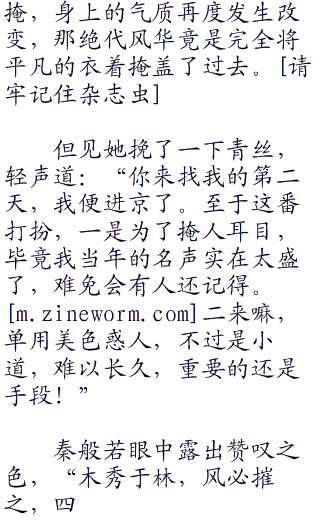 掩，身上的气质再度发生改
变，那绝代风华竟是完全将
平凡的衣着掩盖了过去。[请
牢记住杂志虫]
但见她挽了一下青丝，
轻声道：“你来找我的第二
天，我便进京了。至于这番
打扮，一是为了掩人耳目，
毕竟我当年的名声实在太盛
了，难免会有人还记得。
[m.zineworm.com]二来嘛，
单用美色惑人，不过是小
道，难以长久，重要的还是
手段！”
秦般若眼中露出赞叹之
色，“木秀于林，风必摧
之，四